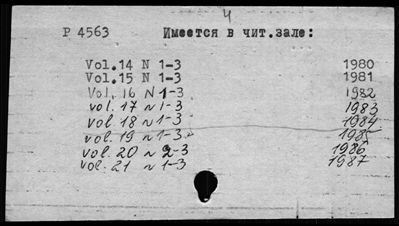 4
P 4563 Имеется в чит.зале:
Vol.14 N 1-3 1980
Vol.15 N 1-3 1981
Vol. 16 N 1-3 1982
vol. 17 N 1-3 1983
vol. 18 N 1-3 1984
vol. 19 N 1-3 1985
vol. 20 N 2-3 1986
vol. 21 N 1-3 1987